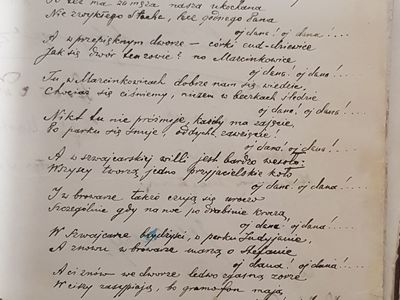 ma za męża nasza ukochana
Nie zwykłego człeka, lecz godnego Pana
oj dana! oj dana!....
A w przepięknym dworze – córki cud-dziewice
Jak się dwór ten zowie? no Marcinkowice
oj dana! oj dana!....
Tu w Marcinkowicach dobrze nam się wiedzie,
Chociaż się ciśniemy, niczem w beczkach śledzie
oj dana! oj dana!....
Nikt tu nie próżnuje, każdy ma zajęcie,
Po parku się snuje, oddycha zawzięcie!
oj dana! oj dana!....
A w szwajcarskiej willi jest bardzo wesoło
Wszyscy tworzą jedno przyjacielskie koło
oj dana! oj dana!....
I w browarze także czują się uroczo
Szczególnie gdy na noc po drabinie kroczą,
oj dana! oj dana!....
W Szwajcarce, w parku Indyjanie,
A znowu w browarze marzą o Stefanie
oj dana! oj dana!....
A ci znów we dworze ledwo ujrzą zorze
W ciszy zasypiają, bo gramofon mają,
oj dana! oj dana!....